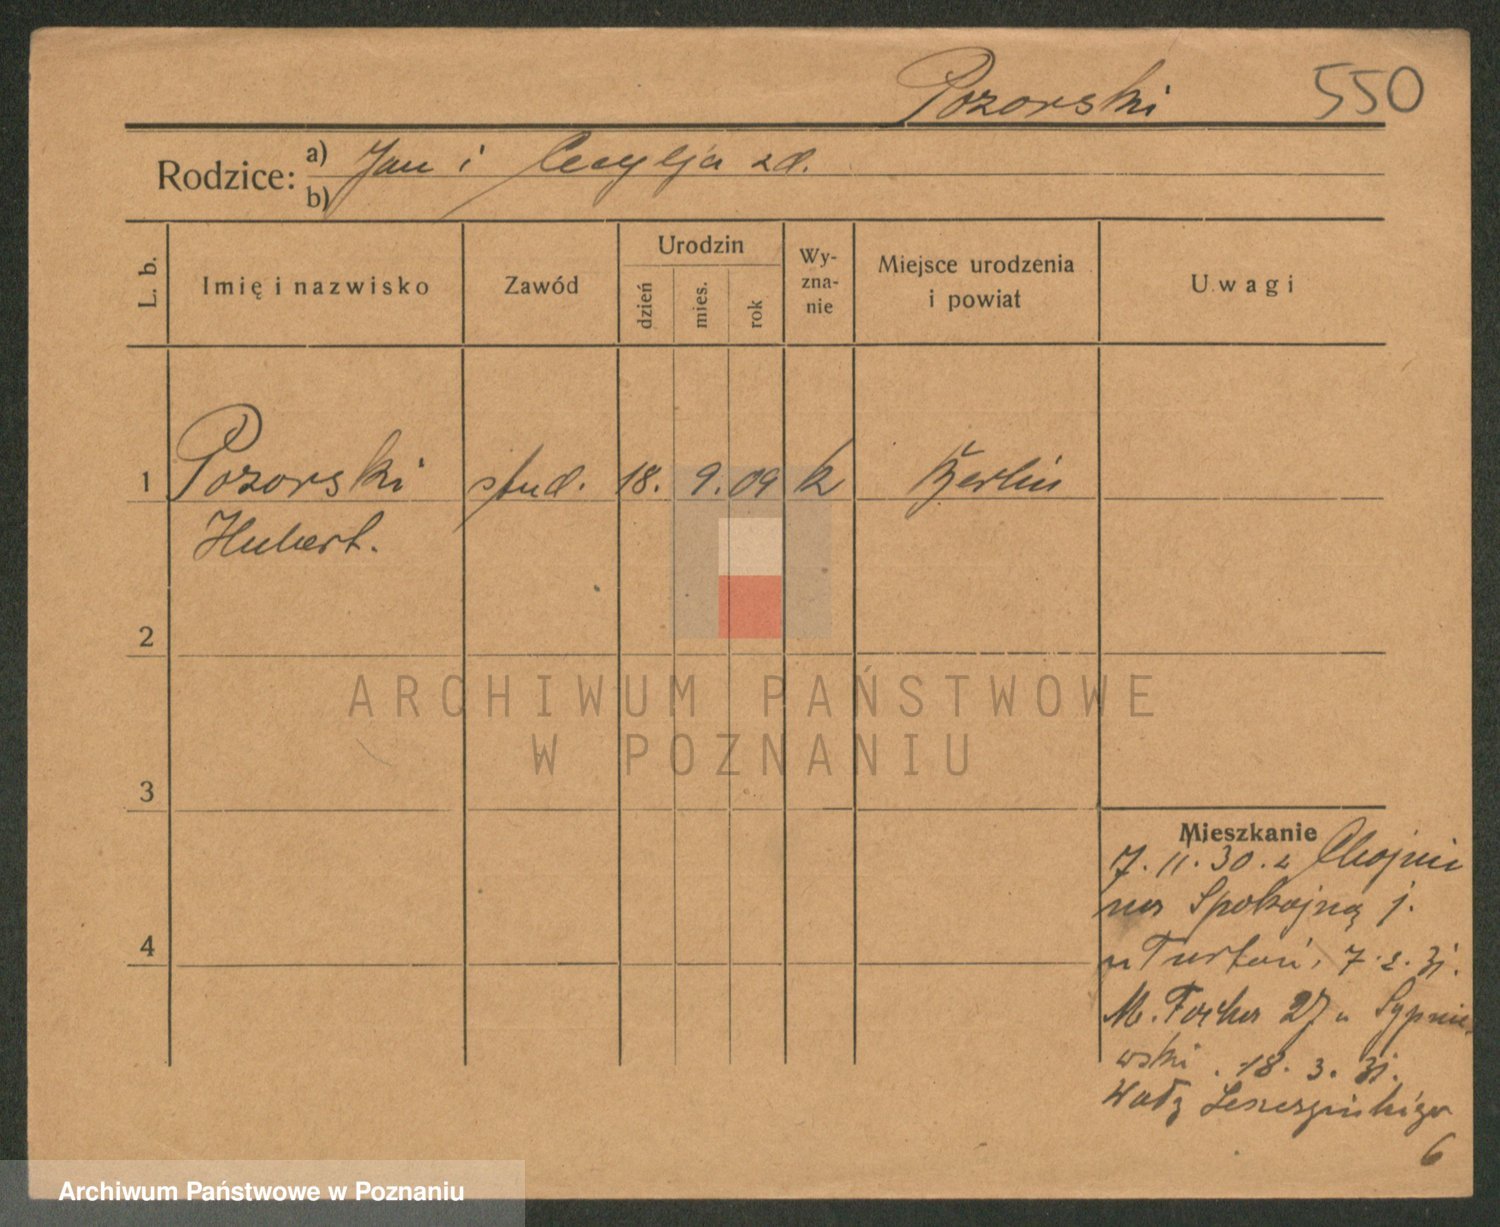 Pozorski 550
Rodzice: a) Jan i Cecylja zd.
b)
L. b.
Imię i nazwisko
Zawód
Urodzin
dzień
mies.
rok
Wy-
zna-
nie
Miejsce urodzenia
i powiat
Uwagi
1 Pozorski stud. 18. 9. 09 k Berlin
Hubert.
2
ARCHIWUM PAŃSTWOWE
W POZNANIU
3
Mieszkanie
7. 11. 30. z Chojni
Spokojną j.
4
u 7. 2. 31.
M. Focha 27 u Sypnie-
wski. 18. 3. 31.
Wały Leszczyńskiego
6
Archiwum Państwowe w Poznaniu